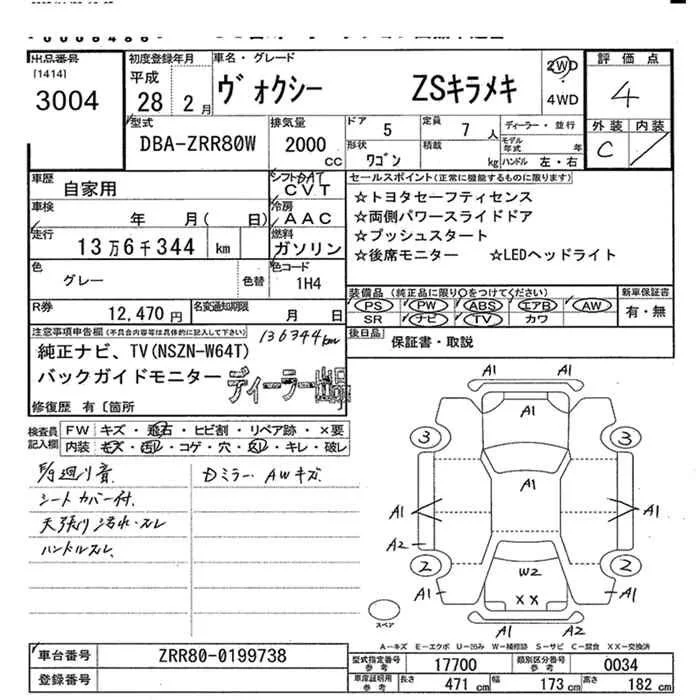 出品番号
[1414]
3004
初度登録年月
平成
28年 2月
車名・グレード
ヴォクシー ZSキラメキ
2WD
4WD
評価点
4
外装 内装
C
型式
DBA-ZRR80W
排気量
2000
CC
ドア 5
定員 7人
形状 ワゴン
積載 kg
ディーラー・並行
モデル年式 年
ハンドル 左・右
車歴 自家用
シフト DAT
CVT
車検 年 月( 日)
冷房
AAC
走行 13万6千344 km
燃料
ガソリン
色 グレー
色替
色コード
1H4
R券 12,470円
名変通知期限 月 日
セールスポイント(正常に機能するものに限ります)
☆トヨタセーフティセンス
☆両側パワースライドドア
☆プッシュスタート
☆後席モニター ☆LEDヘッドライト
装備品(純正品に限り○をつけてください)
新車保証書
PS PW ABS エアB AW
有・無
SR ナビ TV カワ
後日品 保証書・取説
注意事項申告欄(不具合内容等は具体的に記入して下さい)
136344km
純正ナビ、TV(NSZN-W64T)
バックガイドモニター
ディーラー
修復歴 有〔箇所
検査員
記入欄
FW キズ・飛石・ヒビ割・リペア跡・×要
内装 キズ・汚れ・コゲ・穴・スレ・キレ・破レ
廻り音
シートカバー付
天張り汚れ・スレ
ハンドルスレ
Dミラー・AWキズ
A1 A1
A1
3 3
A1
A1 A1
A2
2 2
W2
A1 XX A1
A1 A2
スペア
A-キズ E-エクボ U-凹み W-補修跡 S-サビ C-腐食 XX-交換済
車台番号 ZRR80-0199738
登録番号
型式指定番号
参考
17700
類別区分番号
参考
0034
車庫証明用
参考
長さ 471cm 幅 173cm 高さ 182cm